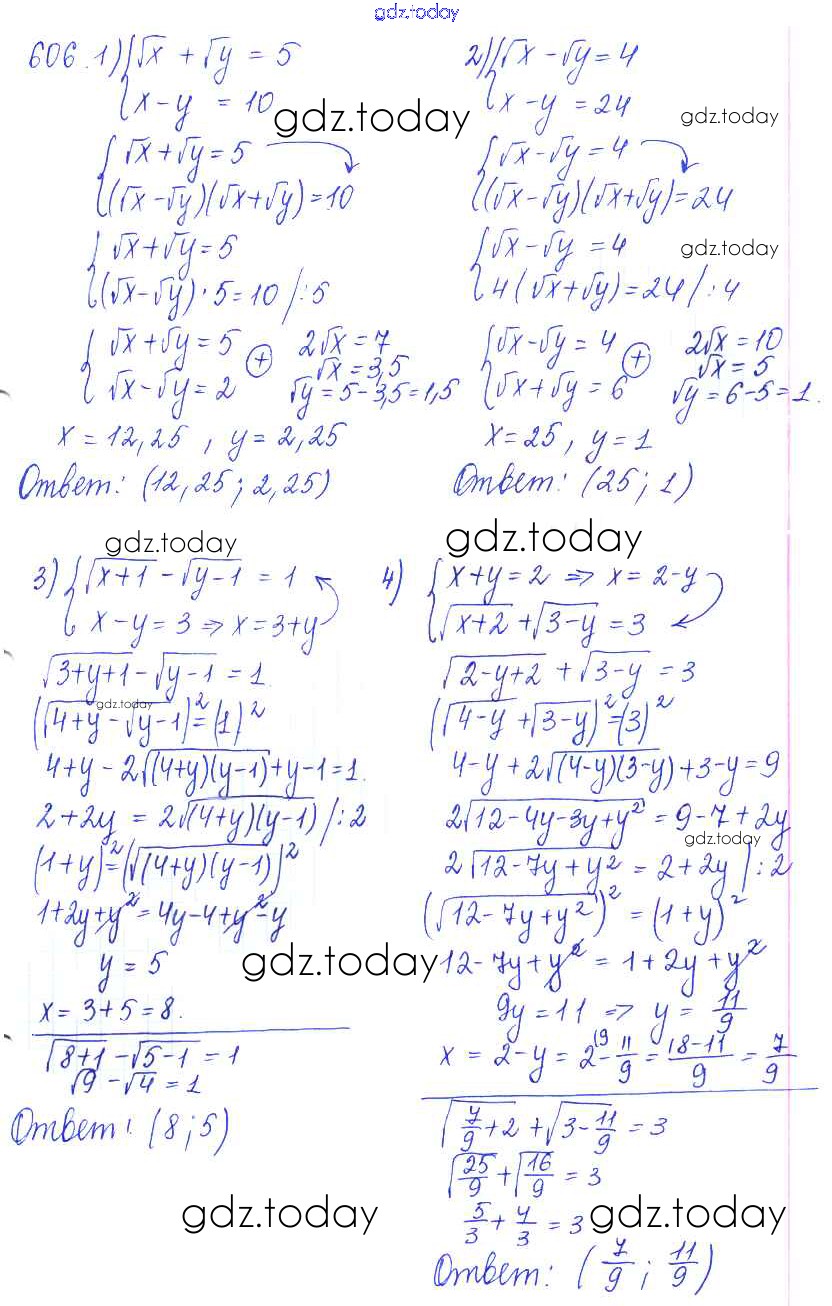 gdz.today
606. 1) { √x + √y = 5
x - y = 10
gdz.today
{ √x + √y = 5
(√x - √y)(√x + √y) = 10
{ √x + √y = 5
(√x - √y) · 5 = 10 /: 5
{ √x + √y = 5
√x - √y = 2
⊕ 2√x = 7
√x = 3,5
√y = 5 - 3,5 = 1,5
x = 12,25 , y = 2,25
Ответ: (12,25; 2,25)
2) { √x - √y = 4
x - y = 24
gdz.today
{ √x - √y = 4
(√x - √y)(√x + √y) = 24
{ √x - √y = 4
4(√x + √y) = 24 /: 4
gdz.today
{ √x - √y = 4
√x + √y = 6
⊕ 2√x = 10
√x = 5
√y = 6 - 5 = 1.
x = 25, y = 1
Ответ: (25; 1)
gdz.today
3) { √(x+1) - √(y-1) = 1
x - y = 3 ⇒ x = 3 + y
√(3+y+1) - √(y-1) = 1.
gdz.today
(√(4+y - √y-1)² = (1)²
4 + y - 2√((4+y)(y-1)) + y - 1 = 1.
2 + 2y = 2√((4+y)(y-1)) /: 2
(1+y)² = (√((4+y)(y-1)))²
1 + 2y + y² = 4y - 4 + y² - y
y = 5
gdz.today
x = 3 + 5 = 8.
√(8+1) - √(5-1) = 1
√9 - √4 = 1
Ответ: (8; 5)
gdz.today
gdz.today
4) { x + y = 2 ⇒ x = 2 - y
√(x+2) + √(3-y) = 3
√(2-y+2) + √(3-y) = 3
(√(4-y) + √(3-y))² = (3)²
4 - y + 2√((4-y)(3-y)) + 3 - y = 9
2√(12 - 4y - 3y + y²) = 9 - 7 + 2y
gdz.today
2√(12 - 7y + y²) = 2 + 2y /: 2
(√(12 - 7y + y²))² = (1 + y)²
12 - 7y + y² = 1 + 2y + y²
9y = 11 ⇒ y = 11/9
x = 2 - y = 2^(9 - 11/9 = (18-11)/9 = 7/9
√(7/9 + 2) + √(3 - 11/9) = 3
√(25/9) + √(16/9) = 3
5/3 + 4/3 = 3
gdz.today
Ответ: (7/9; 11/9)